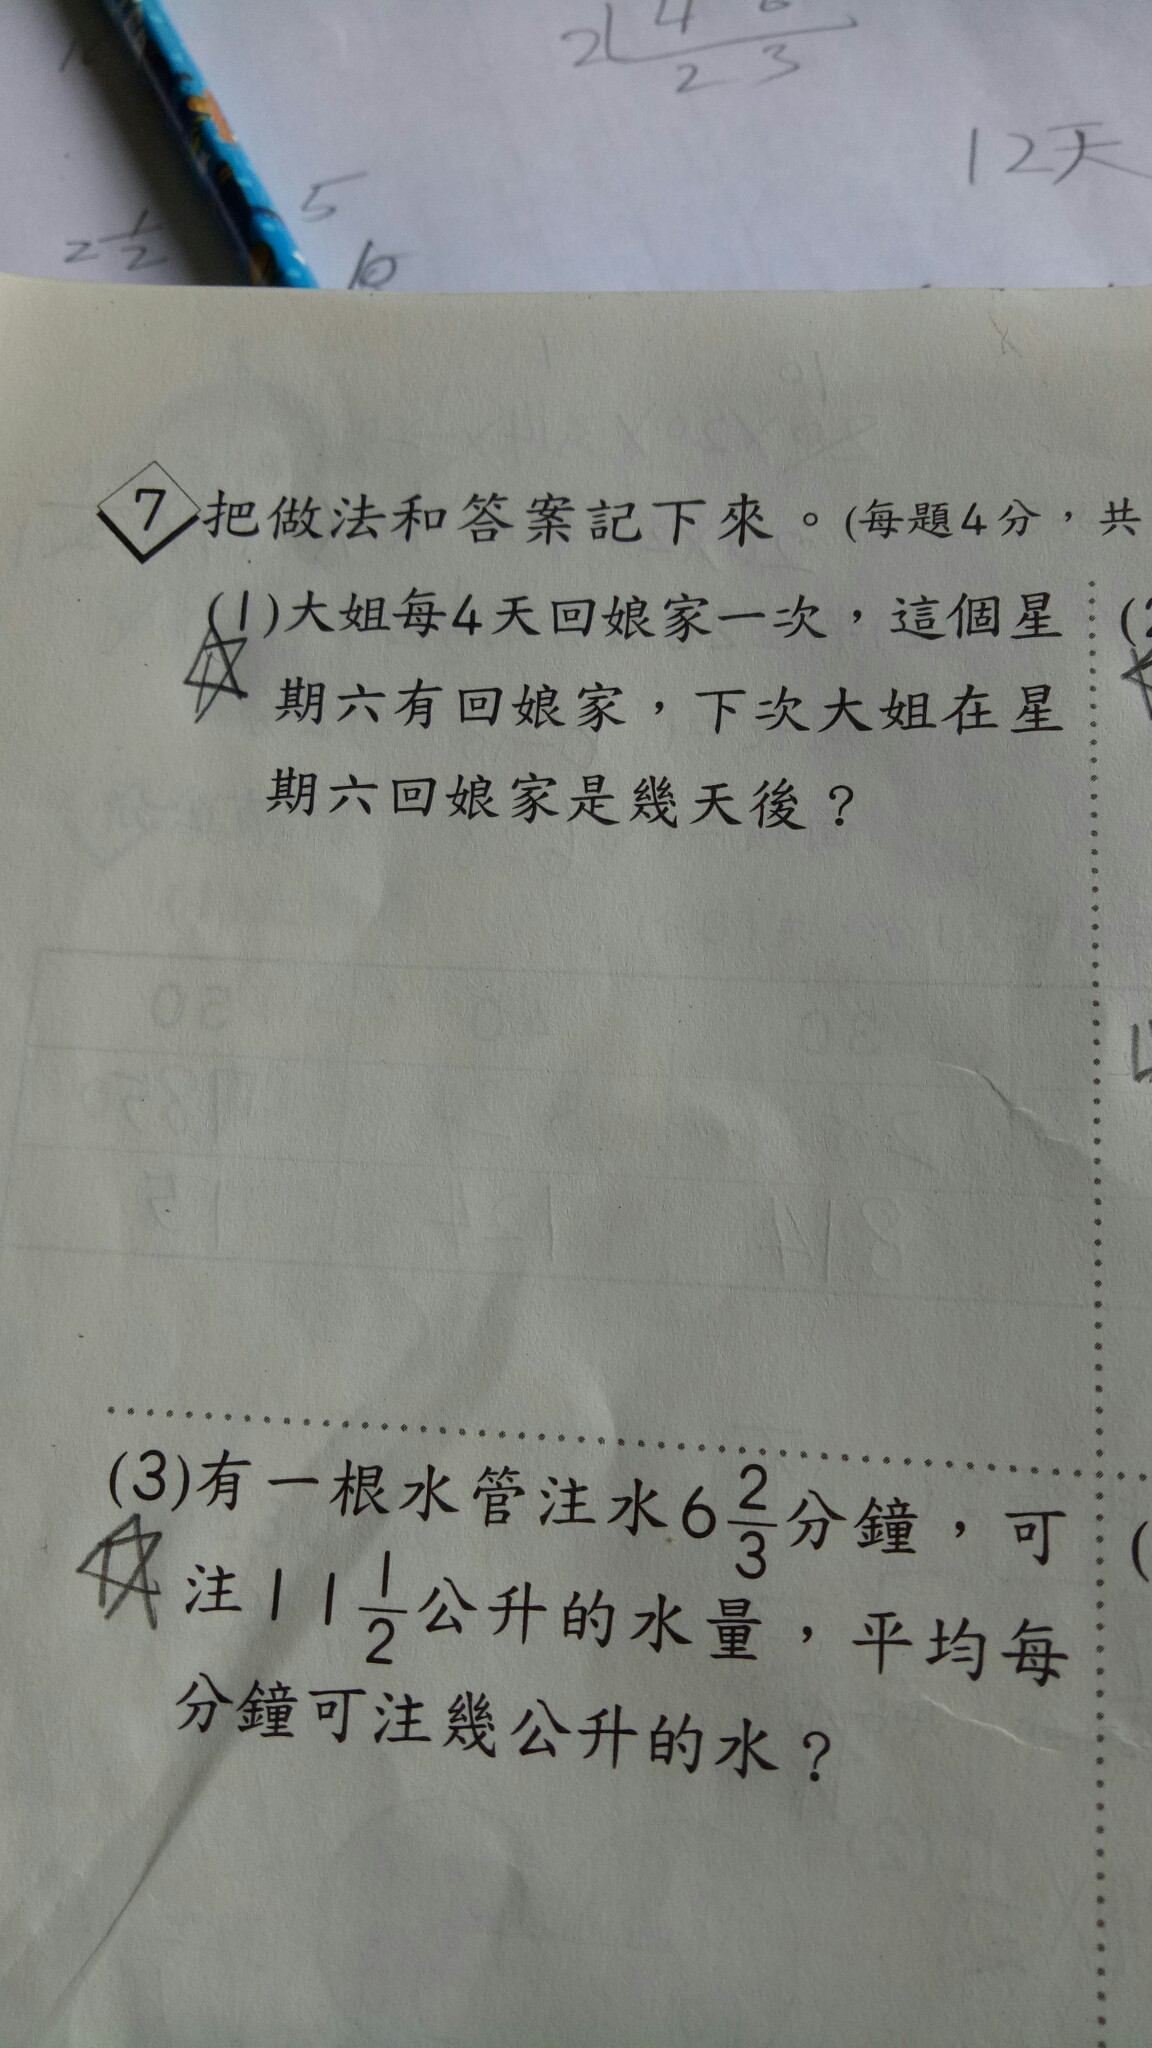 2 4 6
2 3
12天
5
2 1/2
10
7 把做法和答案記下來。(每題4分，共
(1)大姐每4天回娘家一次，這個星
期六有回娘家，下次大姐在星
期六回娘家是幾天後？
(3)有一根水管注水6 2/3分鐘，可
注11 1/2公升的水量，平均每
分鐘可注幾公升的水？